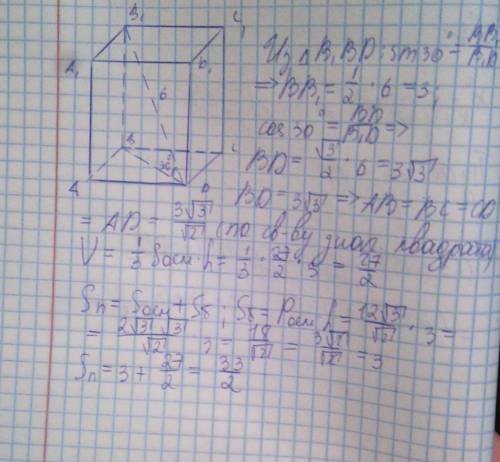 B₁ C₁
A₁ D₁
6
B C
30°
A D
Из △ B₁BD: sin30° = BB₁/B₁D
=> BB₁ = 1/2 · 6 = 3;
cos 30° = BD/B₁D =>
BD = √3/2 · 6 = 3√3
BD = 3√3 => AB = BC = CD
= AD = 3√3/√2 (по св-ву диаг. квадрата)
V = 1/3 Sосн · h = 1/3 · 27/2 · 3 = 27/2
Sп = Sосн + Sб; Sб = Pосн · h = 12√3/√2 · 3 =
= 2√3 · √3/√2 · 3 = 18/√2 = 3√2/√2 = 3
Sп = 3 + 27/2 = 33/2